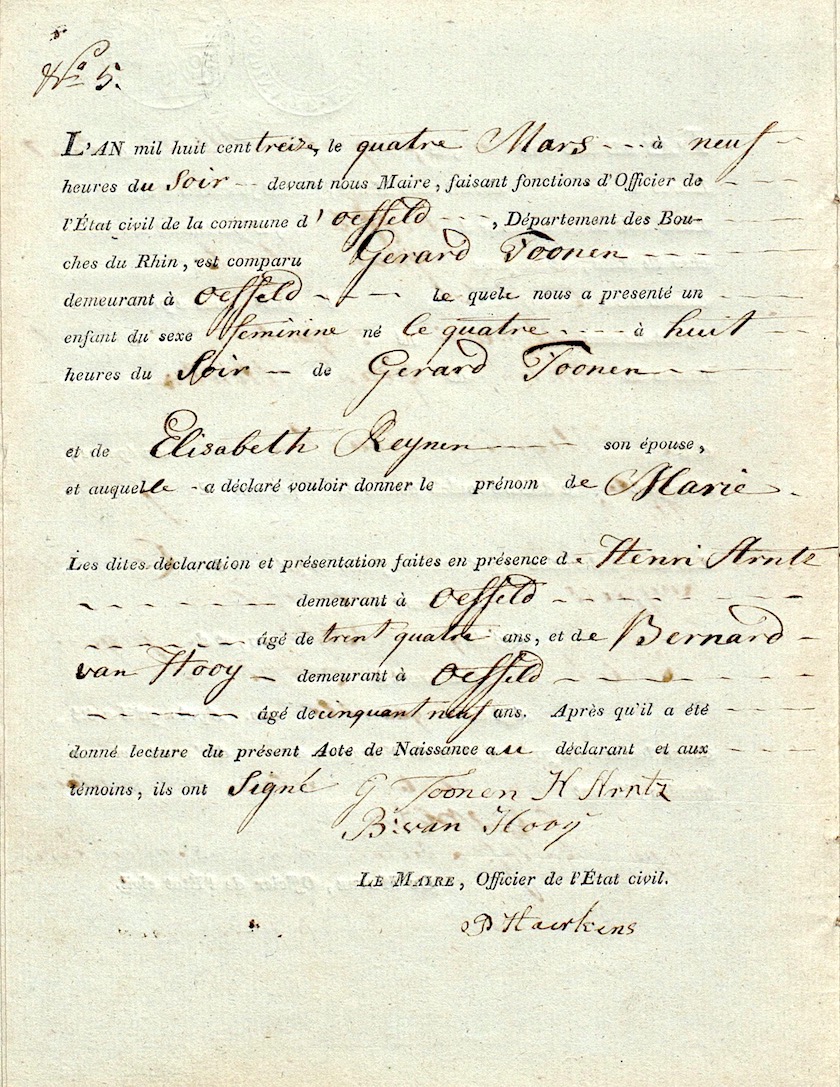 Nº 5.
L'AN mil huit cent treize, le quatre Mars - - - à neuf -
heures du Soir - - devant nous Maire, faisant fonctions d'Officier de - - -
l'État civil de la commune d'oeffeld - - -, Département des Bou- - - -
ches du Rhin, est comparu Gerard Toonen - - - -
demeurant à oeffeld - - - - le quele nous a presenté un - - -
enfant du sexe feminine né le quatre - - - - à huit -
heures du Soir - de Gerard Toonen - - -
et de Elisabeth Reynen - - - - son épouse,
et auquelle - a déclaré vouloir donner le prénom de Marie -
Les dites déclaration et présentation faites en présence de Henri Arntz
- - - - - - - demeurant à oeffeld - - - - - - - -
- - - - - - âgé de trent quatre ans, et de Bernard -
van Hooy - demeurant à oeffeld - - - - - - -
- - - - - - âgé de cinquant neuf ans. Après qu'il a été - - -
donné lecture du présent Acte de Naissance au déclarant et aux - - -
témoins, ils ont Signé G Toonen H Arntz
B: van Hooy
LE MAIRE, Officier de l'État civil.